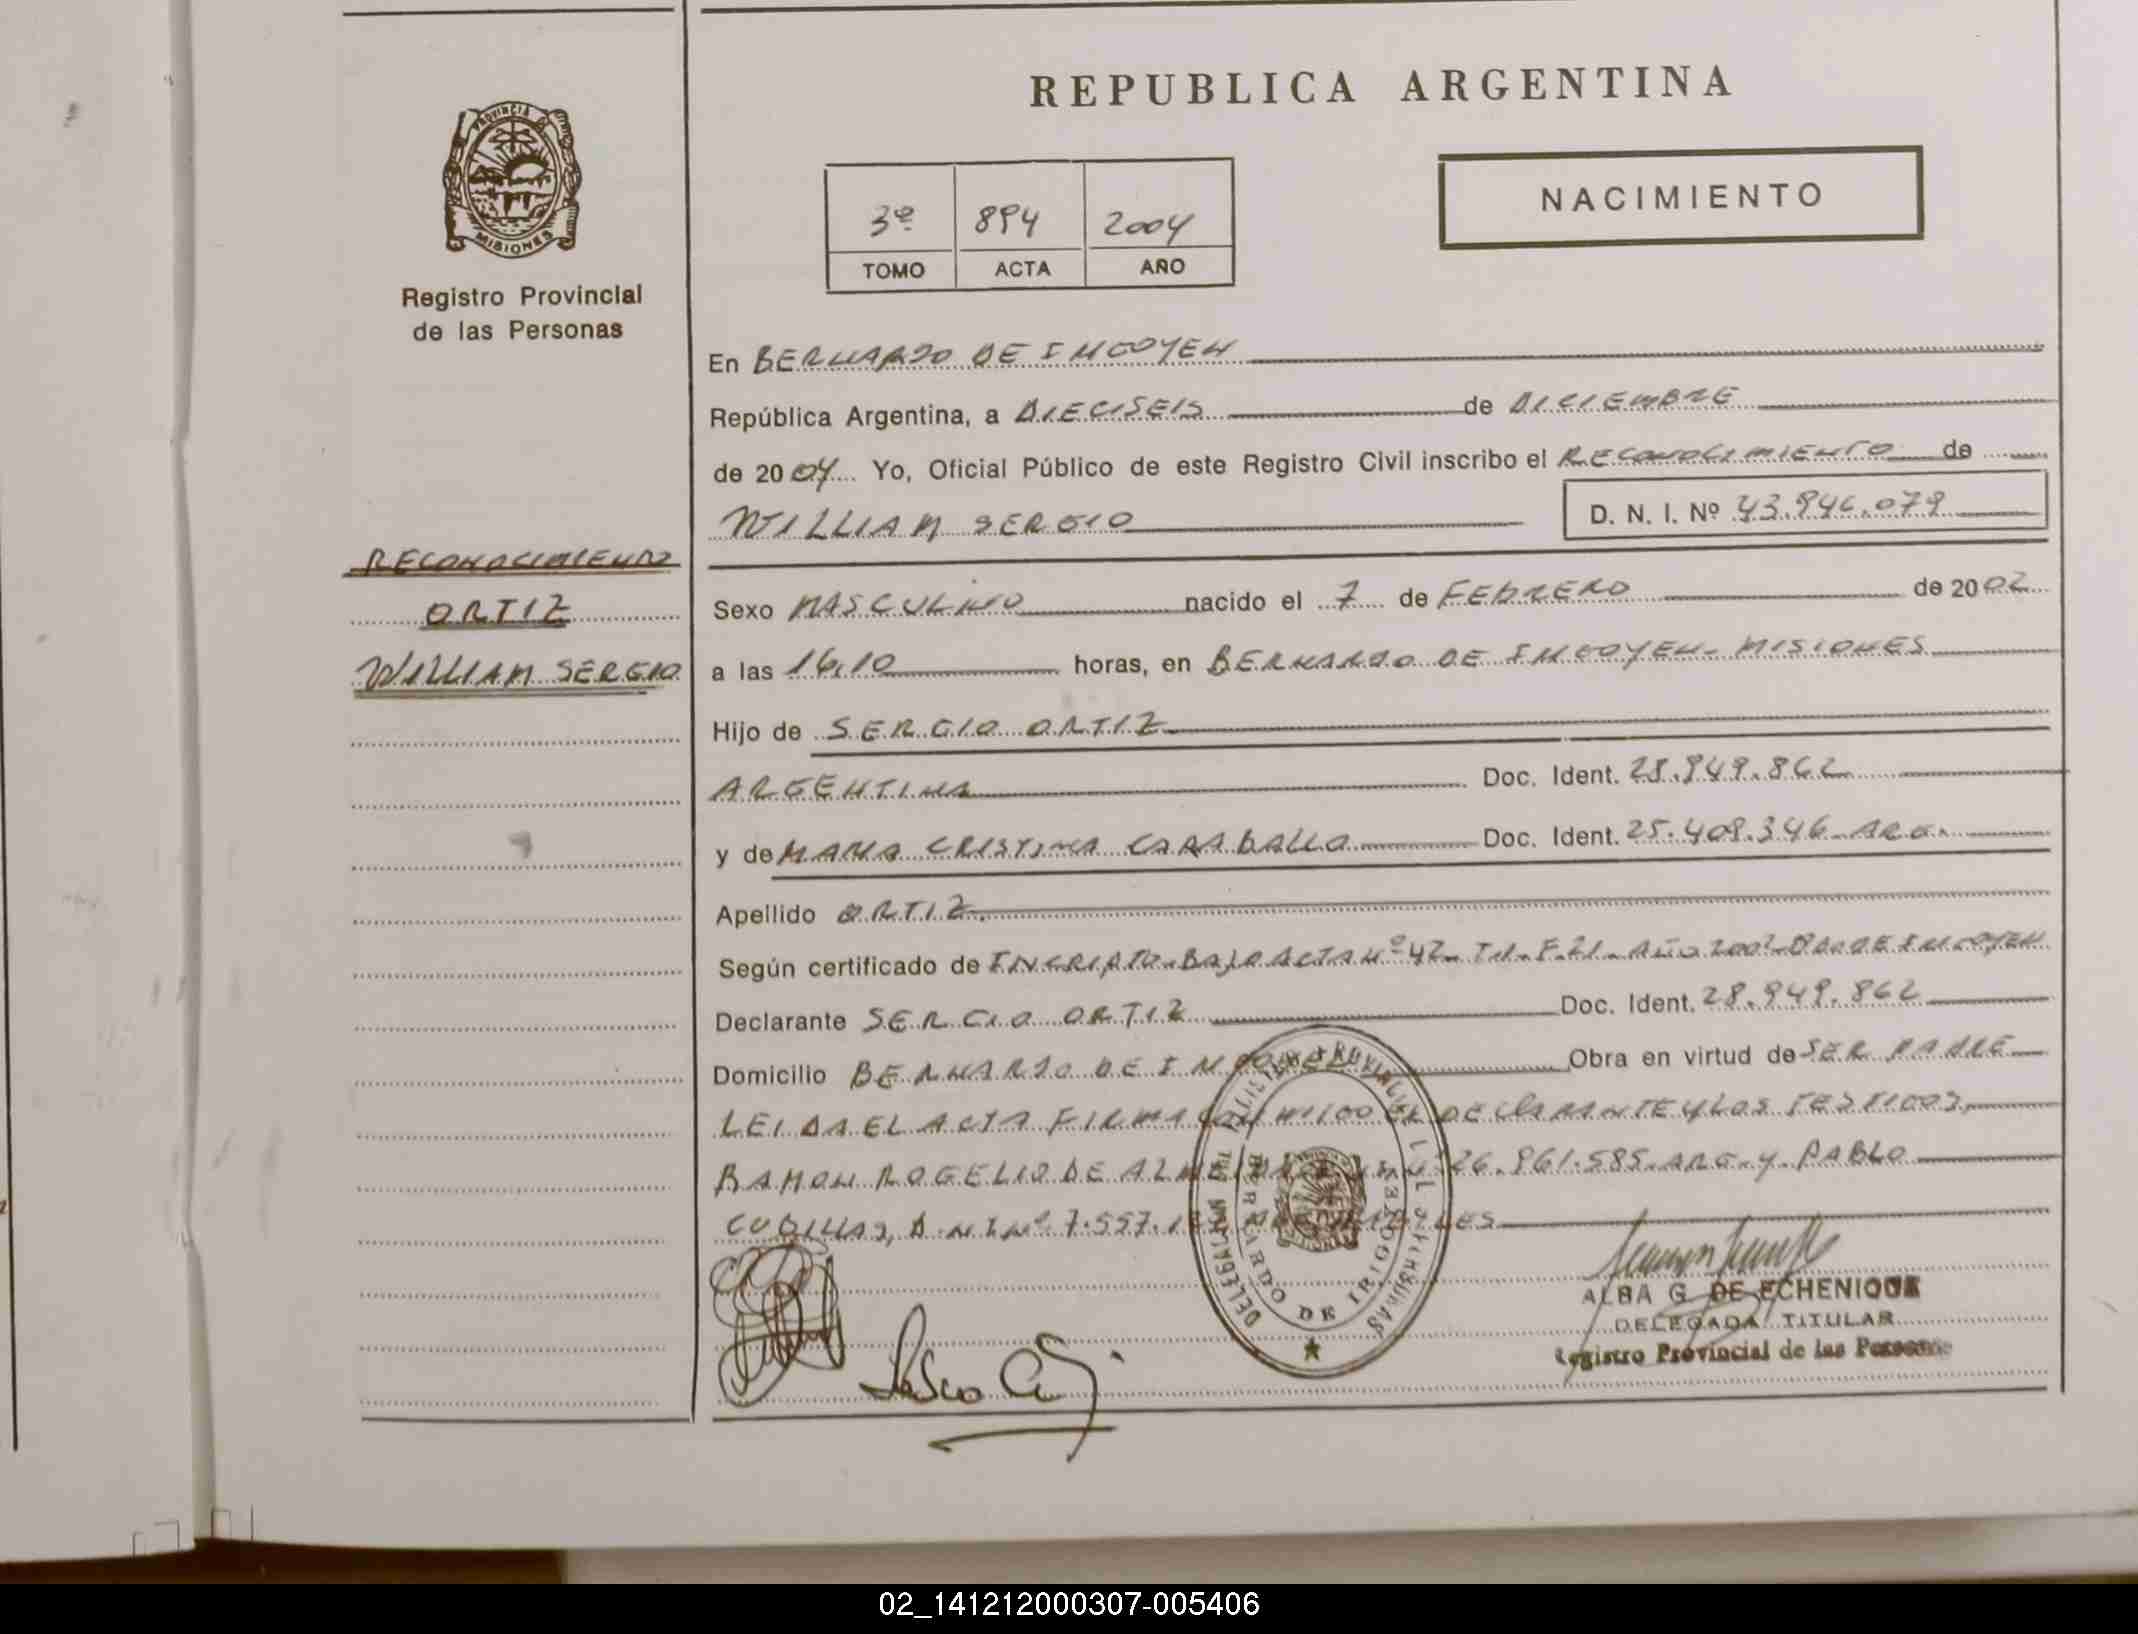 REPUBLICA ARGENTINA
PROVINCIA DE
MISIONES
Registro Provincial
de las Personas
3º 894 2004
TOMO ACTA AÑO
NACIMIENTO
En BERNARDO DE IRIGOYEN
República Argentina, a DIECISEIS de DICIEMBRE
de 2004 Yo, Oficial Público de este Registro Civil inscribo el RECONOCIMIENTO de
WILLIAM SERGIO D. N. I. Nº 43.946.079
RECONOCIMIENTO
ORTIZ
WILLIAM SERGIO
Sexo MASCULINO nacido el 7 de FEBRERO de 2002
a las 16,10 horas, en BERNARDO DE IRIGOYEN - MISIONES
Hijo de SERGIO ORTIZ
ARGENTINA Doc. Ident. 28.949.862
y de MARIA CRISTINA CARABALLO Doc. Ident. 25.409.346 ARG.
Apellido ORTIZ.
Según certificado de INCRIPTO BAJO ACTA Nº 42 - T.1 - F.21 - AÑO 2002 - BDO DE IRIGOYEN
Declarante SERGIO ORTIZ Doc. Ident. 28.949.862
Domicilio BERNARDO DE IRIGOYEN Obra en virtud de SER PADRE
LEIDA EL ACTA FIRMA CONMIGO EL DECLARANTE Y LOS TESTIGOS,
RAMON ROGELIO DE 26.961.585. ARG. Y PABLO
CUBILLAS, D.N.I Nº 7.557.
DELEGACION BERNARDO DE IRIGOYEN
ALBA G. DE ECHENIQUE
DELEGADA TITULAR
Registro Provincial de las Personas
02_141212000307-005406